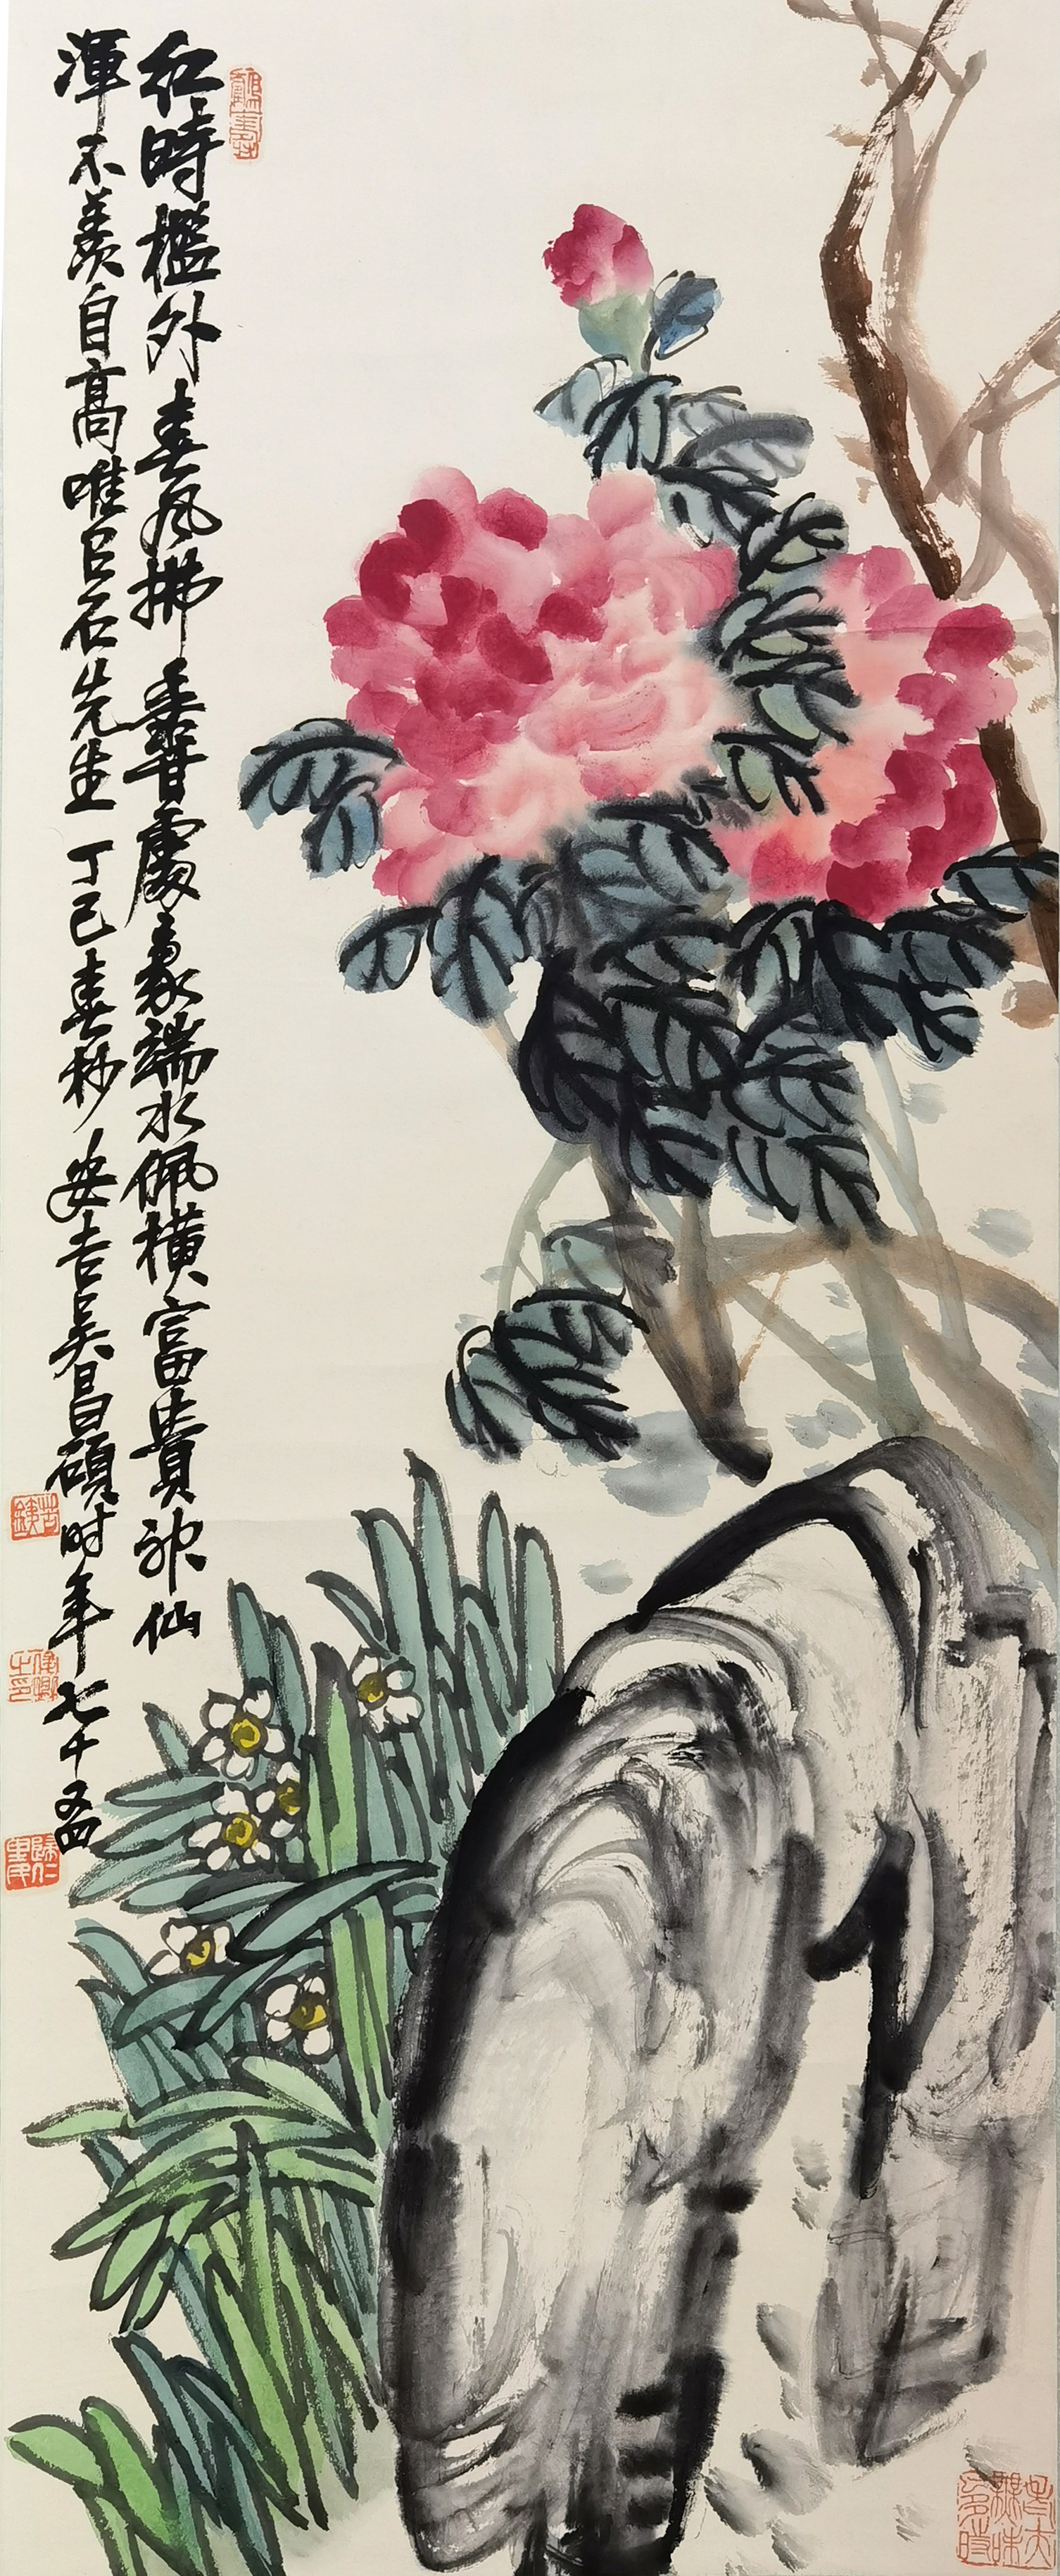 红時檻外春风拂
香處豪端水佩横富貴神仙
渾不羨自高唯臣石先生丁巳春杪安吉吴昌碩时年七十又四